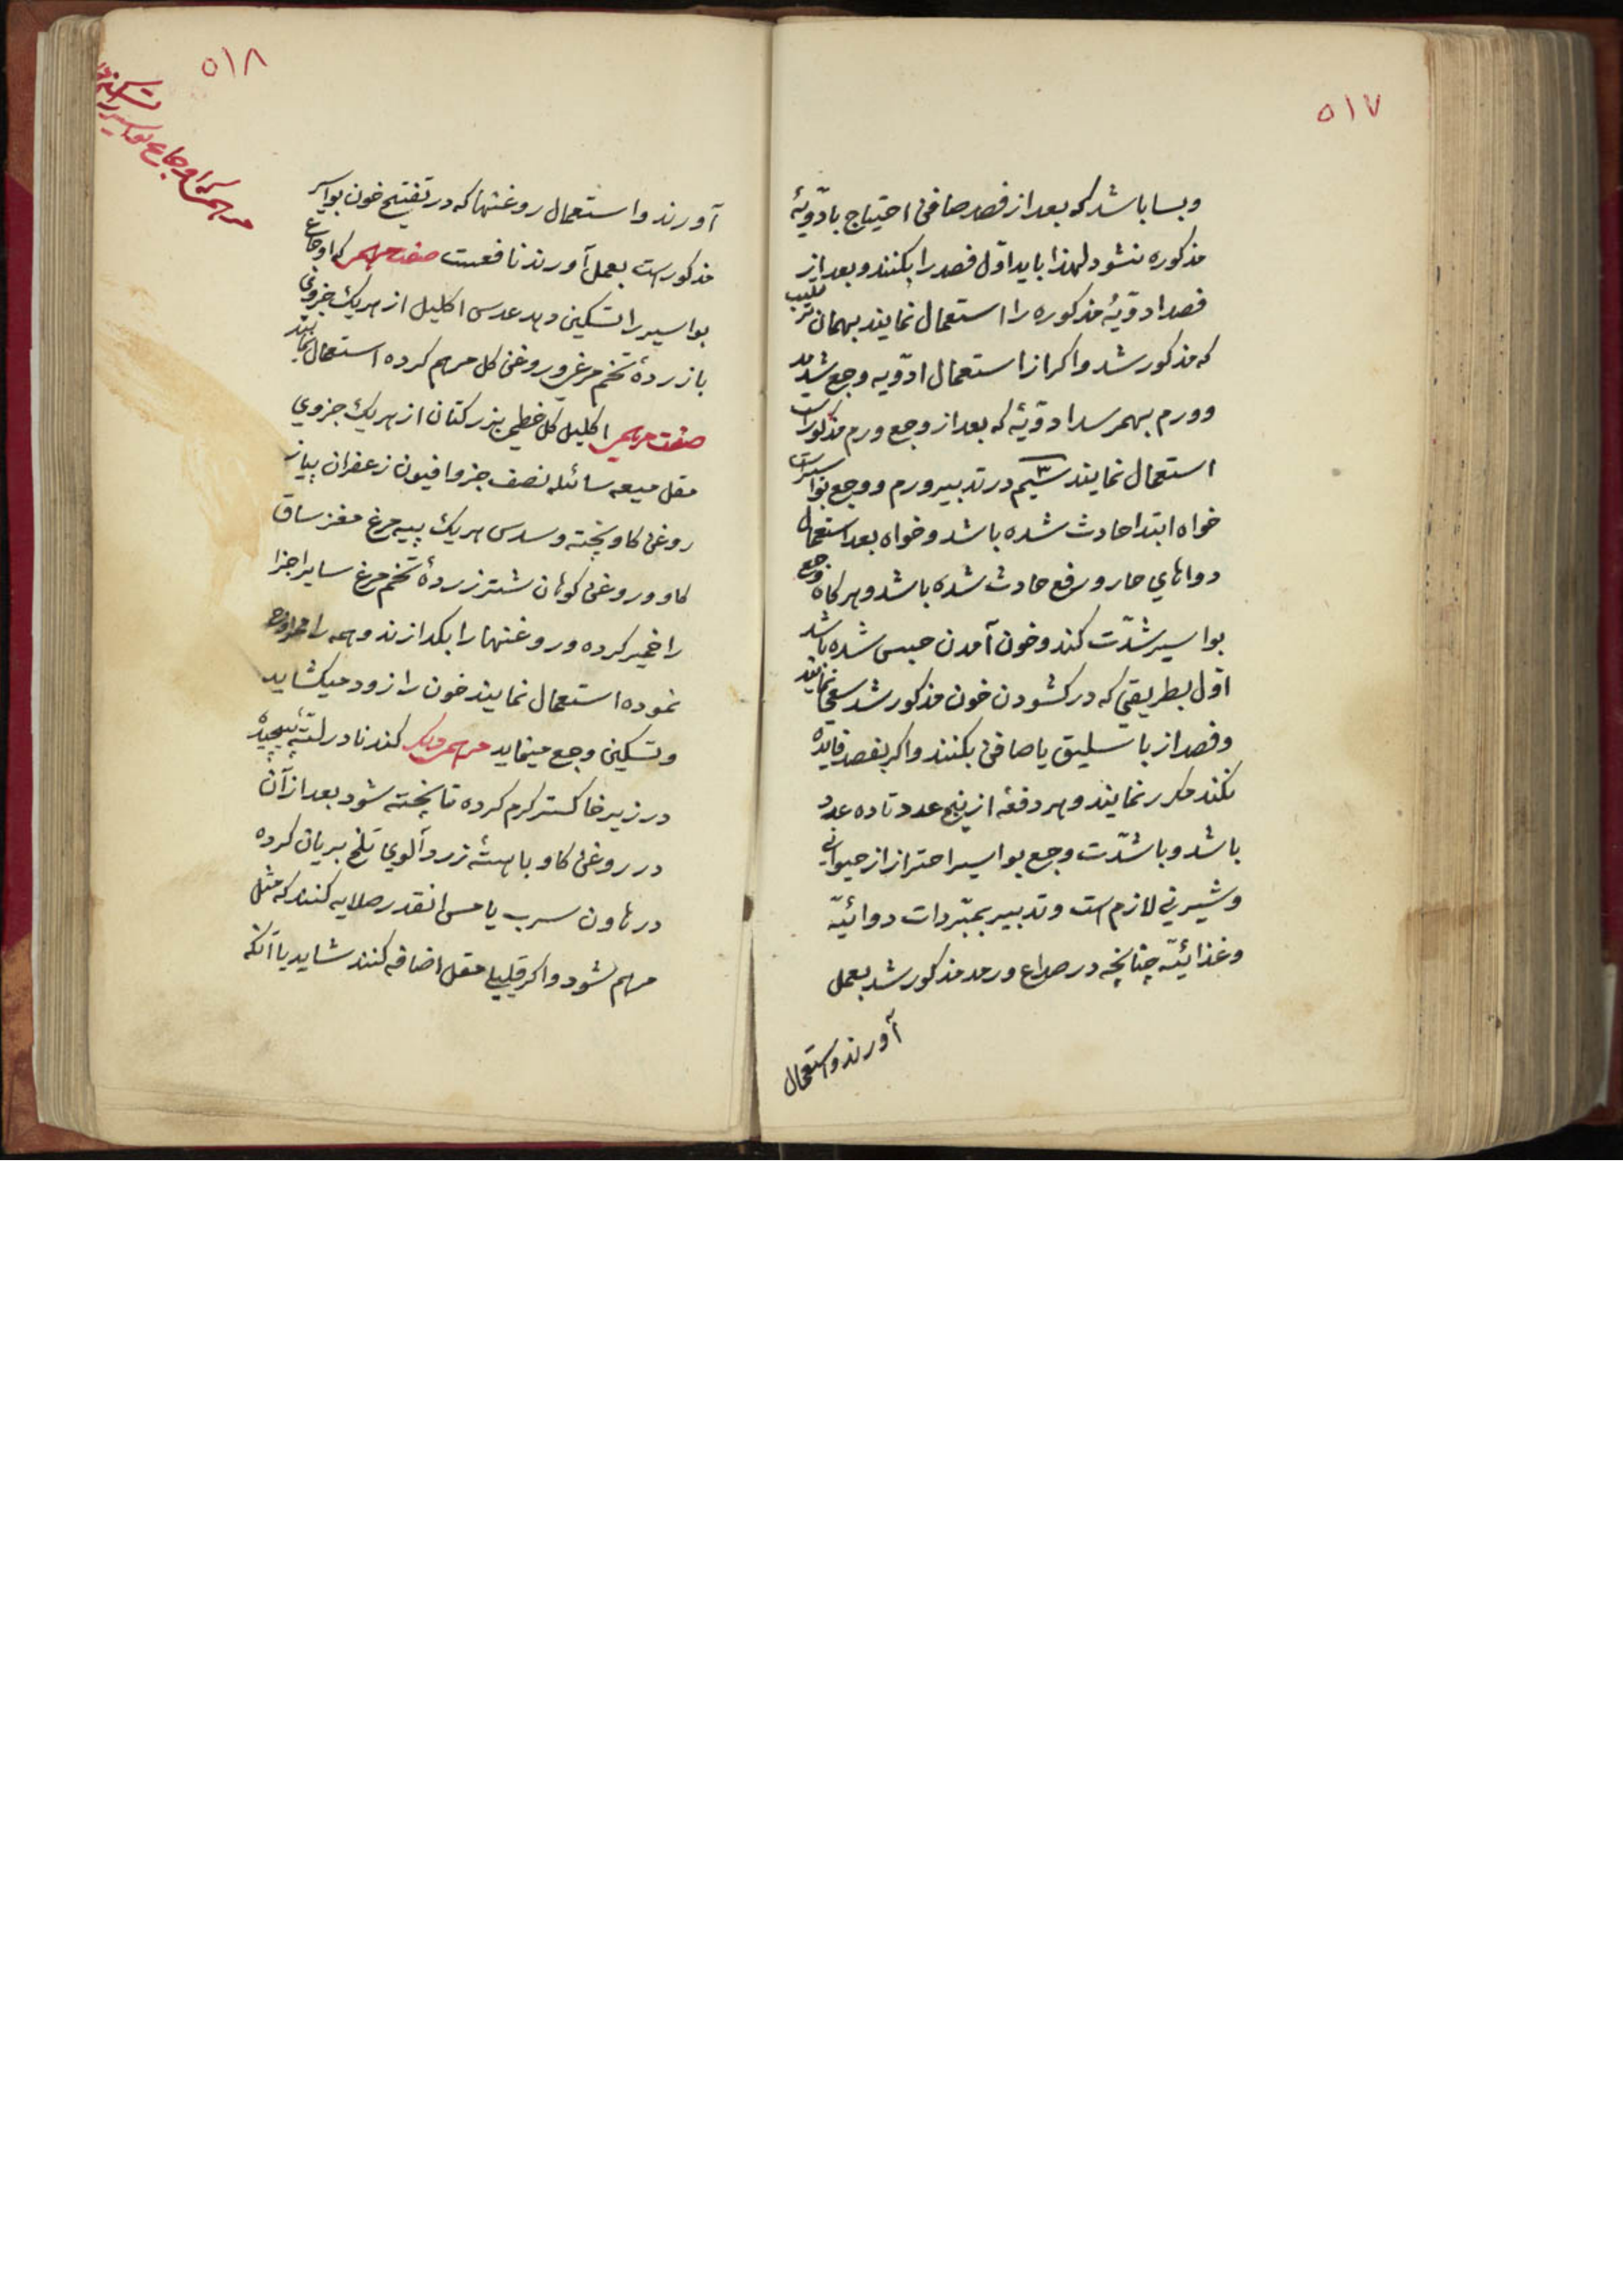 ۵۱۷
و بسا باشد که بعد از فصد صافن احتیاج بادویّهٔ
مذکوره نشود لهذا باید اوّل فصد را بکنند و بعد از
فصد ادویّهٔ مذکوره را استعمال نمایند بهمان ترتیب
که مذکور شد و اکر از استعمال ادویّه وجع شدید
و ورم بهمرسد ادویّهٔ که بعد از وجع ورم مذکور است
استعمال نمایند سیم در تدبیر ورم و وجع بواسیر است
خواه ابتدا حادث شده باشد و خواه بعد استعمال
دواهای حار و رفع حادث شده باشد و هر کاه وجع
بواسیر شدّت کند و خون آمدن حبس شده باشد
اوّل بطریقی که در کشودن خون مذکور شد سعی نمایند
و فصد از باسلیق یا صافن بکنند و اکر بفصد فایده
نکند مکرر نمایند و هر دفعه از پنج عدد تا ده عدد
باشد و با شدّت وجع بواسیر احتراز از حیوانی
و شیرینی لازم است و تدبیر بمبّردات دوائیّه
و غذائیّه چنانچه در صداع و رمد مذکور شد بعمل
آورند و استعمال
۵۱۸
مرهم که اوجاع بواسیر را تسکین
آورند و استعمال روغنها که در تفتیح خون بواسیر
مذکور است بعمل آورند نافعست صفت مرهمی که اوجاع
بواسیر را تسکین دهد عدس اکلیل از هریک جزوی
با زردهٔ تخم مرغ و روغن کل مرهم کرده استعمال نمایند
صفت مرهمی اکلیل کل خطمی بزر کتان از هریک جزوی
مقل میعه سائله نصف جزو افیون زعفران پیاز
روغن کاو پخته و سدس هریک پیه مرغ مغز ساق
کاو و روغن کوهان شتر زردهٔ تخم مرغ سایر اجزا
را خمیر کرده و روغنها را بکدازند و همه را
نموده استعمال نمایند خون را زود میکشاید
و تسکین وجع مینماید مرهم دیکر کندنا در لتّهٔ پیچیده
در زیر خاکستر کرم کرده تا پخته شود بعد از آن
در روغن کاو با هستهٔ زرد آلوی تلخ بریان کرده
در هاون سرب یا مس انقدر صلایه کنند که مثل
مرهم شود و اکر قلیلی مقل اضافه کنند شاید یا آنکه